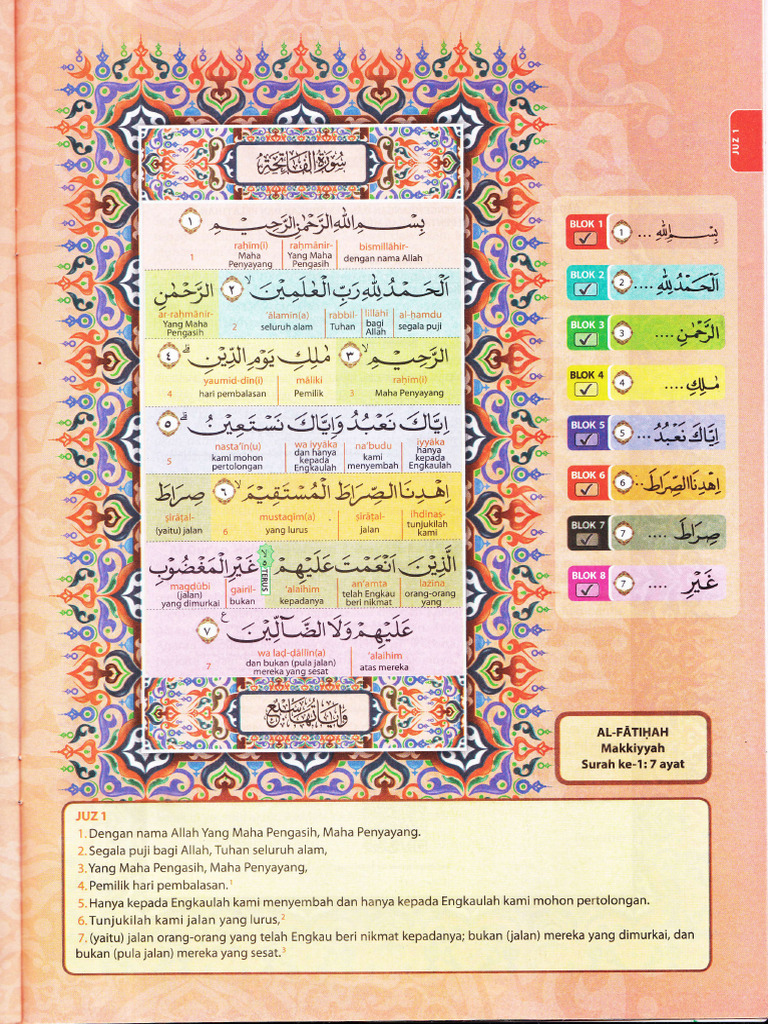 JUZ 1
سورة الفاتحة
بِسْمِ اللّٰهِ الرَّحْمٰنِ الرَّحِيْمِ ١
bismillāhir- raḥmānir- raḥīm(i)
dengan nama Allah Yang Maha Pengasih Maha Penyayang 1
اَلْحَمْدُ لِلّٰهِ رَبِّ الْعٰلَمِيْنَۙ ٢ الرَّحْمٰنِ
al-ḥamdu lillāhi rabbil- ‘ālamīn(a) ar-raḥmānir-
segala puji bagi Allah Tuhan seluruh alam 2 Yang Maha Pengasih
الرَّحِيْمِۙ ٣ مٰلِكِ يَوْمِ الدِّيْنِۗ ٤
raḥīm(i) māliki yaumid-dīn(i)
Maha Penyayang 3 Pemilik hari pembalasan 4
اِيَّاكَ نَعْبُدُ وَاِيَّاكَ نَسْتَعِيْنُۗ ٥
iyyāka na‘budu wa iyyāka nasta‘īn(u)
hanya kepada Engkaulah kami menyembah dan hanya kepada Engkaulah kami mohon pertolongan 5
اِهْدِنَا الصِّرَاطَ الْمُسْتَقِيْمَۙ ٦ صِرَاطَ
ihdinaṣ- ṣirāṭal- mustaqīm(a) ṣirāṭal-
tunjukilah kami jalan yang lurus 6 (yaitu) jalan
الَّذِيْنَ اَنْعَمْتَ عَلَيْهِمْ TERUS غَيْرِ الْمَغْضُوْبِ
lażīna an‘amta ‘alaihim gairil- magḍūbi
orang-orang yang telah Engkau beri nikmat kepadanya bukan (jalan) yang dimurkai
عَلَيْهِمْ وَلَا الضَّاۤلِّيْنَ ࣖ ٧
‘alaihim wa laḍ-ḍāllīn(a)
atas mereka dan bukan (pula jalan) mereka yang sesat 7
وآياتها سبع
BLOK 1 1 ... بِسْمِ اللّٰهِ
BLOK 2 2 .... اَلْحَمْدُ لِلّٰهِ
BLOK 3 3 .... الرَّحْمٰنِ
BLOK 4 4 .... مٰلِكِ
BLOK 5 5 ... اِيَّاكَ نَعْبُدُ
BLOK 6 6 .. اِهْدِنَا الصِّرَاطَ
BLOK 7 7 .... صِرَاطَ
BLOK 8 7 .... غَيْرِ
AL-FĀTIḤAH
Makkiyyah
Surah ke-1: 7 ayat
JUZ 1
1. Dengan nama Allah Yang Maha Pengasih, Maha Penyayang.
2. Segala puji bagi Allah, Tuhan seluruh alam,
3. Yang Maha Pengasih, Maha Penyayang,
4. Pemilik hari pembalasan.¹
5. Hanya kepada Engkaulah kami menyembah dan hanya kepada Engkaulah kami mohon pertolongan.
6. Tunjukilah kami jalan yang lurus,²
7. (yaitu) jalan orang-orang yang telah Engkau beri nikmat kepadanya; bukan (jalan) mereka yang dimurkai, dan
bukan (pula jalan) mereka yang sesat.³